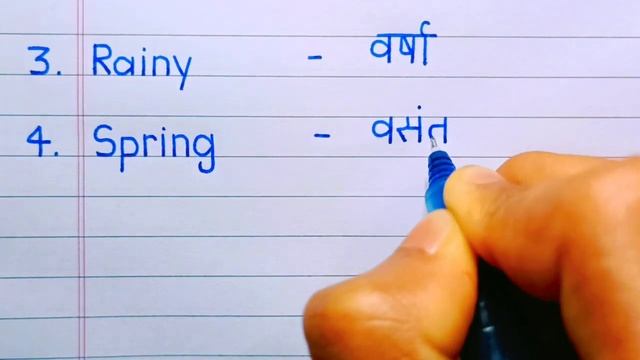 3. Rainy - वर्षा
4. Spring - वसंत